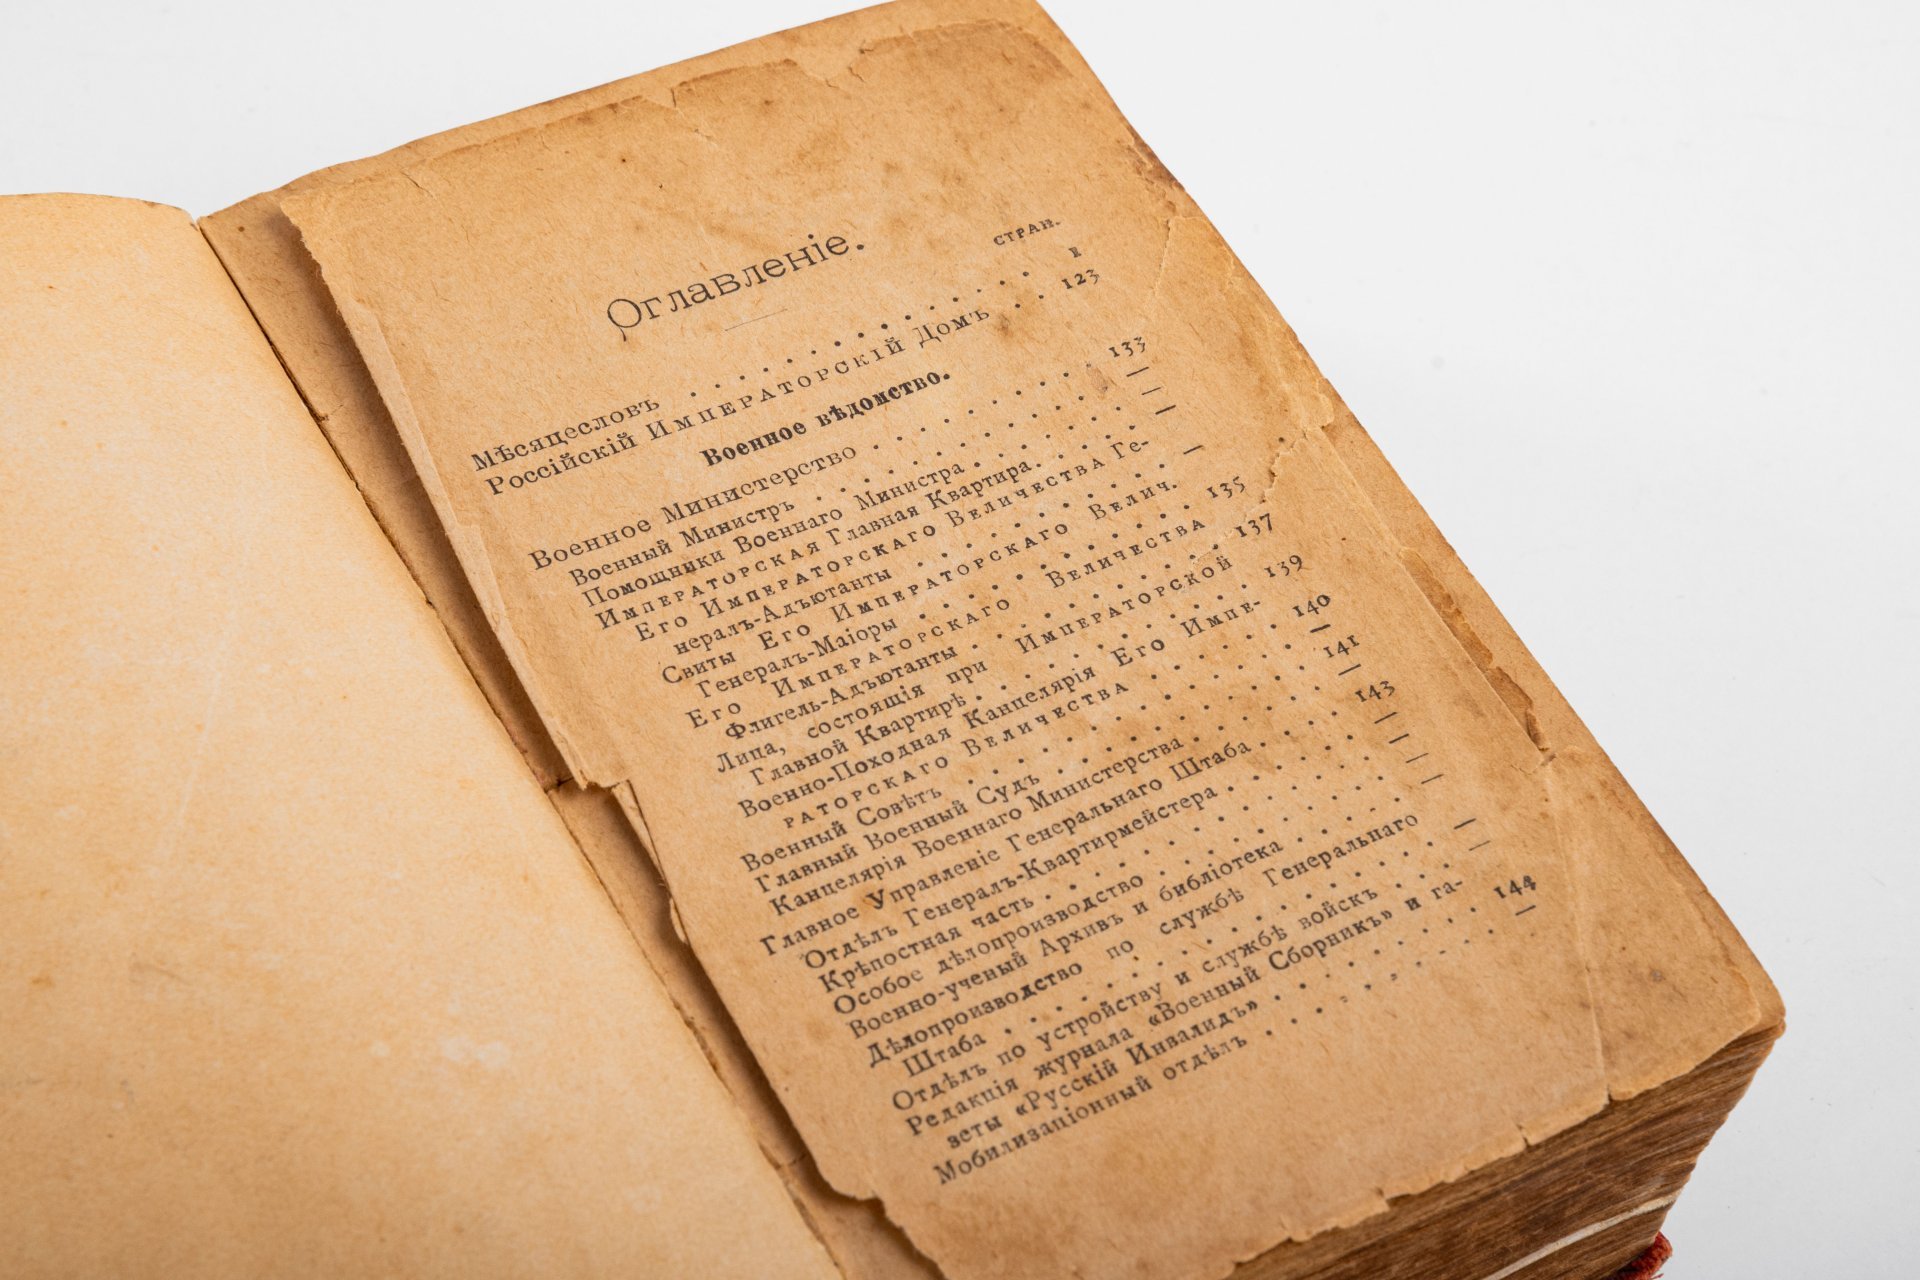 Оглавленіе.
СТРАН.
Мѣсяцесловъ . . . . . . . . . . . . . . . I
Россійскій Императорскій Домъ . . 123
Военное вѣдомство.
Военное Министерство . . . . . . . . . . 133
Военный Министръ . . . . . . . . . . . . —
Помощники Военнаго Министра . . . . . . . —
Императорская Главная Квартира. . . . . . —
Его Императорскаго Величества Ге-
нералъ-Адъютанты . . . . . . . . . . —
Свиты Его Императорскаго Велич.
Генералъ-Маіоры . . . . . . . . . . 135
Его Императорскаго Величества
Флигель-Адъютанты . . . . . . . . . 137
Лица, состоящія при Императорской
Главной Квартирѣ . . . . . . . . . . 139
Военно-Походная Канцелярія Его Импе-
раторскаго Величества . . . . . . . 140
Военный Совѣтъ . . . . . . . . . . . . . —
Главный Военный Судъ . . . . . . . . . . 141
Канцелярія Военнаго Министерства . . . . —
Главное Управленіе Генеральнаго Штаба . . . . 143
Отдѣлъ Генералъ-Квартирмейстера . . . . . —
Крѣпостная часть . . . . . . . . . . . . —
Особое дѣлопроизводство . . . . . . . . . —
Военно-ученый Архивъ и библіотека . . . . —
Дѣлопроизводство по службѣ Генеральнаго
Штаба . . . . . . . . . . . . . . —
Отдѣлъ по устройству и службѣ войскъ . . . —
Редакція журнала «Военный Сборникъ» и га-
зеты «Русскій Инвалидъ» . . . . . . . 144
Мобилизаціонный отдѣлъ . . . . . . . . . —